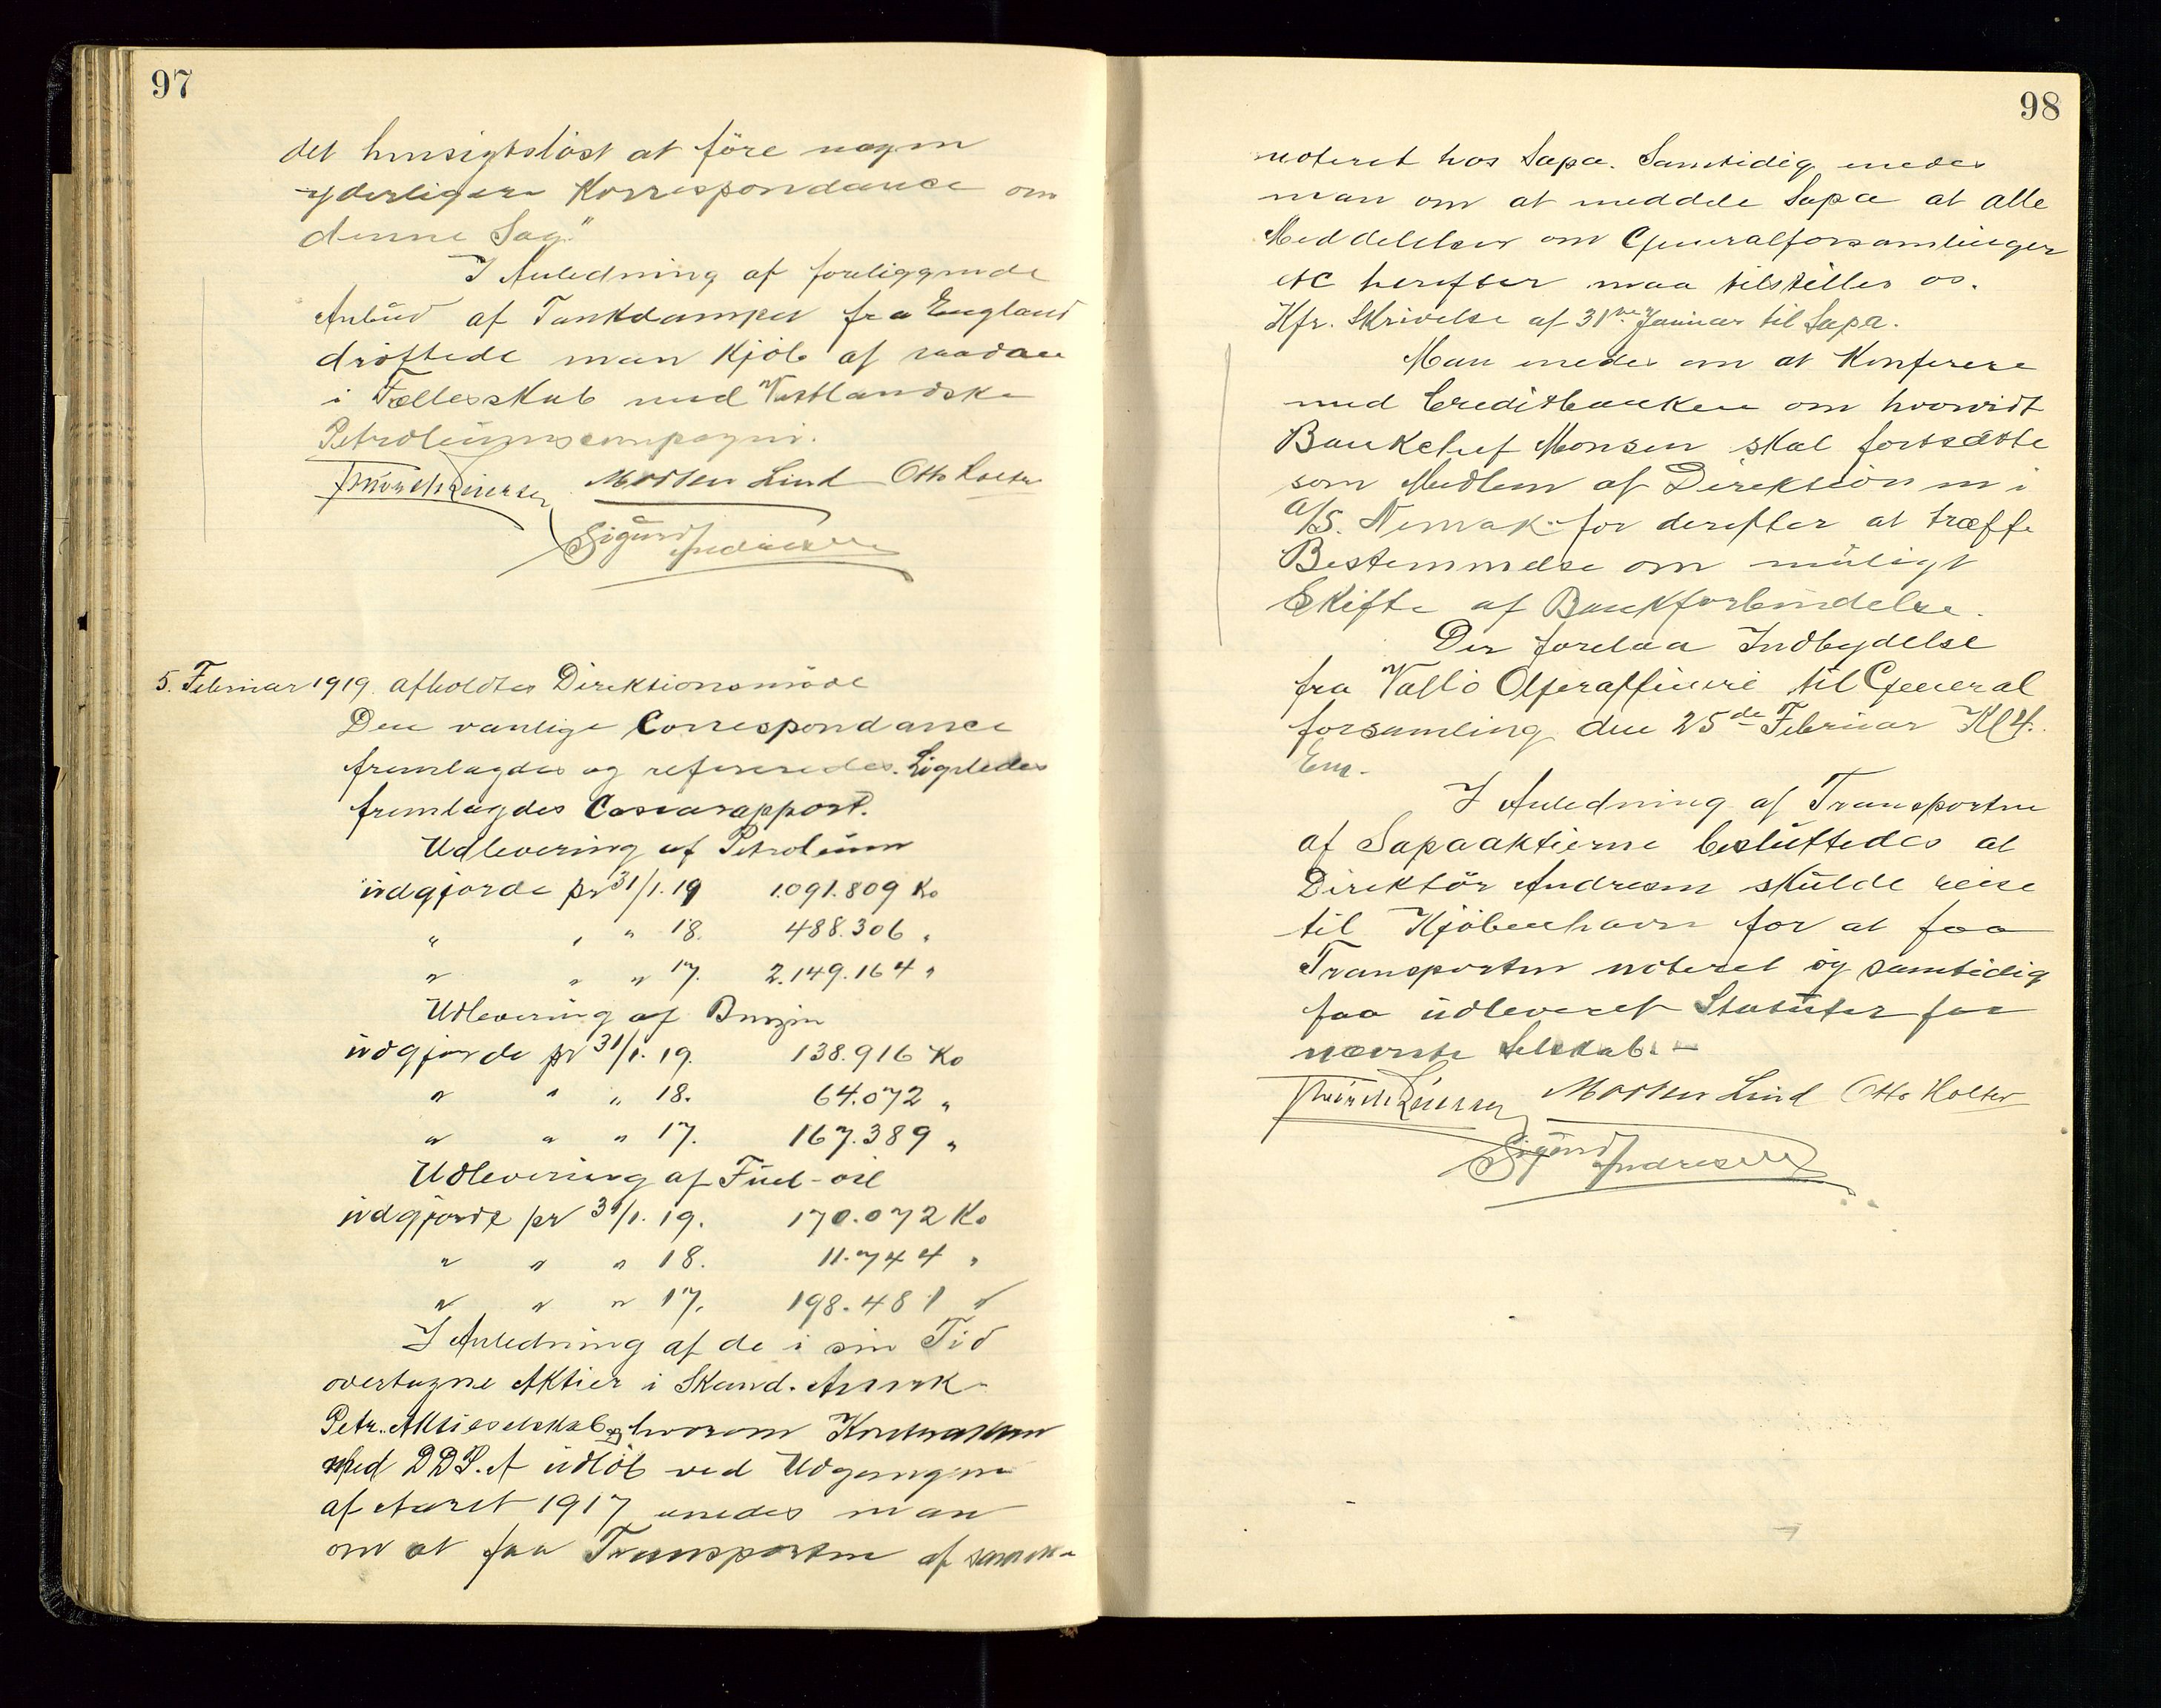 97
det hensigtsløst at føre nogen
yderligere Korrespondance om
denne Sag."
I Anledning af foreliggende
Anbud af Tankdamper fra England
drøftede man Kjøb af saadan
i Fællesskab med Vestlandske
Petroleumscompagni.
Morten Lind Otto Holter
Sigurd Andresen
5. Februar 1919 afholdtes Direktionsmøde
Den vanlige Correspondance
fremlagdes og refereredes. Ligeledes
fremlagdes Cassarapport.
Udlevering af Petroleum
udgjorde pr 31/1. 19 1.091.809 Ko
" " " 18. 488.306 "
" " " 17. 2.149.164 "
Udlevering af Benzin
udgjorde pr 31/1. 19. 138.916 Ko
" " " 18. 64.072 "
" " " 17. 167.389 "
Udlevering af Fuel-oil
udgjorde pr 31/1. 19. 170.072 Ko
" " " 18. 11.744 "
" " " 17. 198.481 "
I Anledning af de i sin Tid
overtagne Aktier i Skand. Amrk.
Petr. Aktieselskab, hvorom Kontrakten
med DDPA udløb ved Udgangen
af Aaret 1917 enedes man
om at faa Transporten af samme
98
noteret hos Sapa. Samtidig enedes
man om at meddele Sapa at alle
Meddelelser om Generalforsamlinger
etc herefter maa tilstilles os.
Kfr. Skrivelse af 31te Januar til Sapa.
Man enedes om at Konferere
med Creditbanken om hvorvidt
Bankchef Monsen skal fortsætte
som Medlem af Direktionen i
A/S. Nemak for derefter at træffe
Bestemmelse om muligt
Skifte af Bankforbindelse.
Der forelaa Indbydelse
fra Vallø Oljeraffineri til General
forsamling den 25de Februar Kl 4.
Em.
I Anledning af Transporten
af Sapaaktierne besluttedes at
Direktør Andresen skulde reise
til Kjøbenhavn for at faa
Transporten noteret og samtidig
faa udleveret Statuter for
nævnte Selskab. —
Morten Lind Otto Holter
Sigurd Andresen